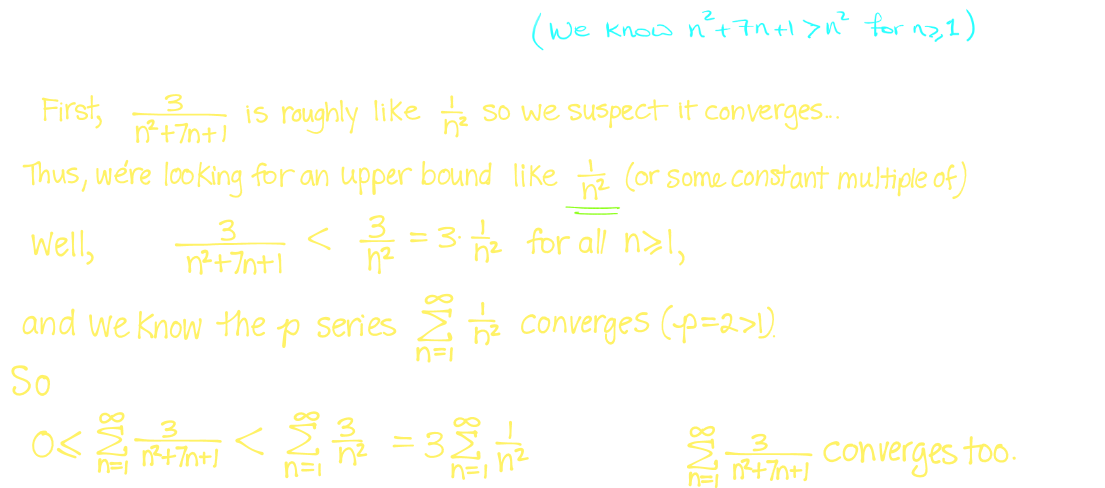 (We know n²+7n+1 > n² for n≥1)
First, 3/(n²+7n+1) is roughly like 1/n² so we suspect it converges...
Thus, we're looking for an upper bound like 1/n² (or some constant multiple of)
Well, 3/(n²+7n+1) < 3/n² = 3·1/n² for all n≥1,
and we know the p series ∑_{n=1}^{∞} 1/n² converges (p=2>1).
So
0≤ ∑_{n=1}^{∞} 3/(n²+7n+1) < ∑_{n=1}^{∞} 3/n² = 3∑_{n=1}^{∞} 1/n² ∑_{n=1}^{∞} 3/(n²+7n+1) converges too.